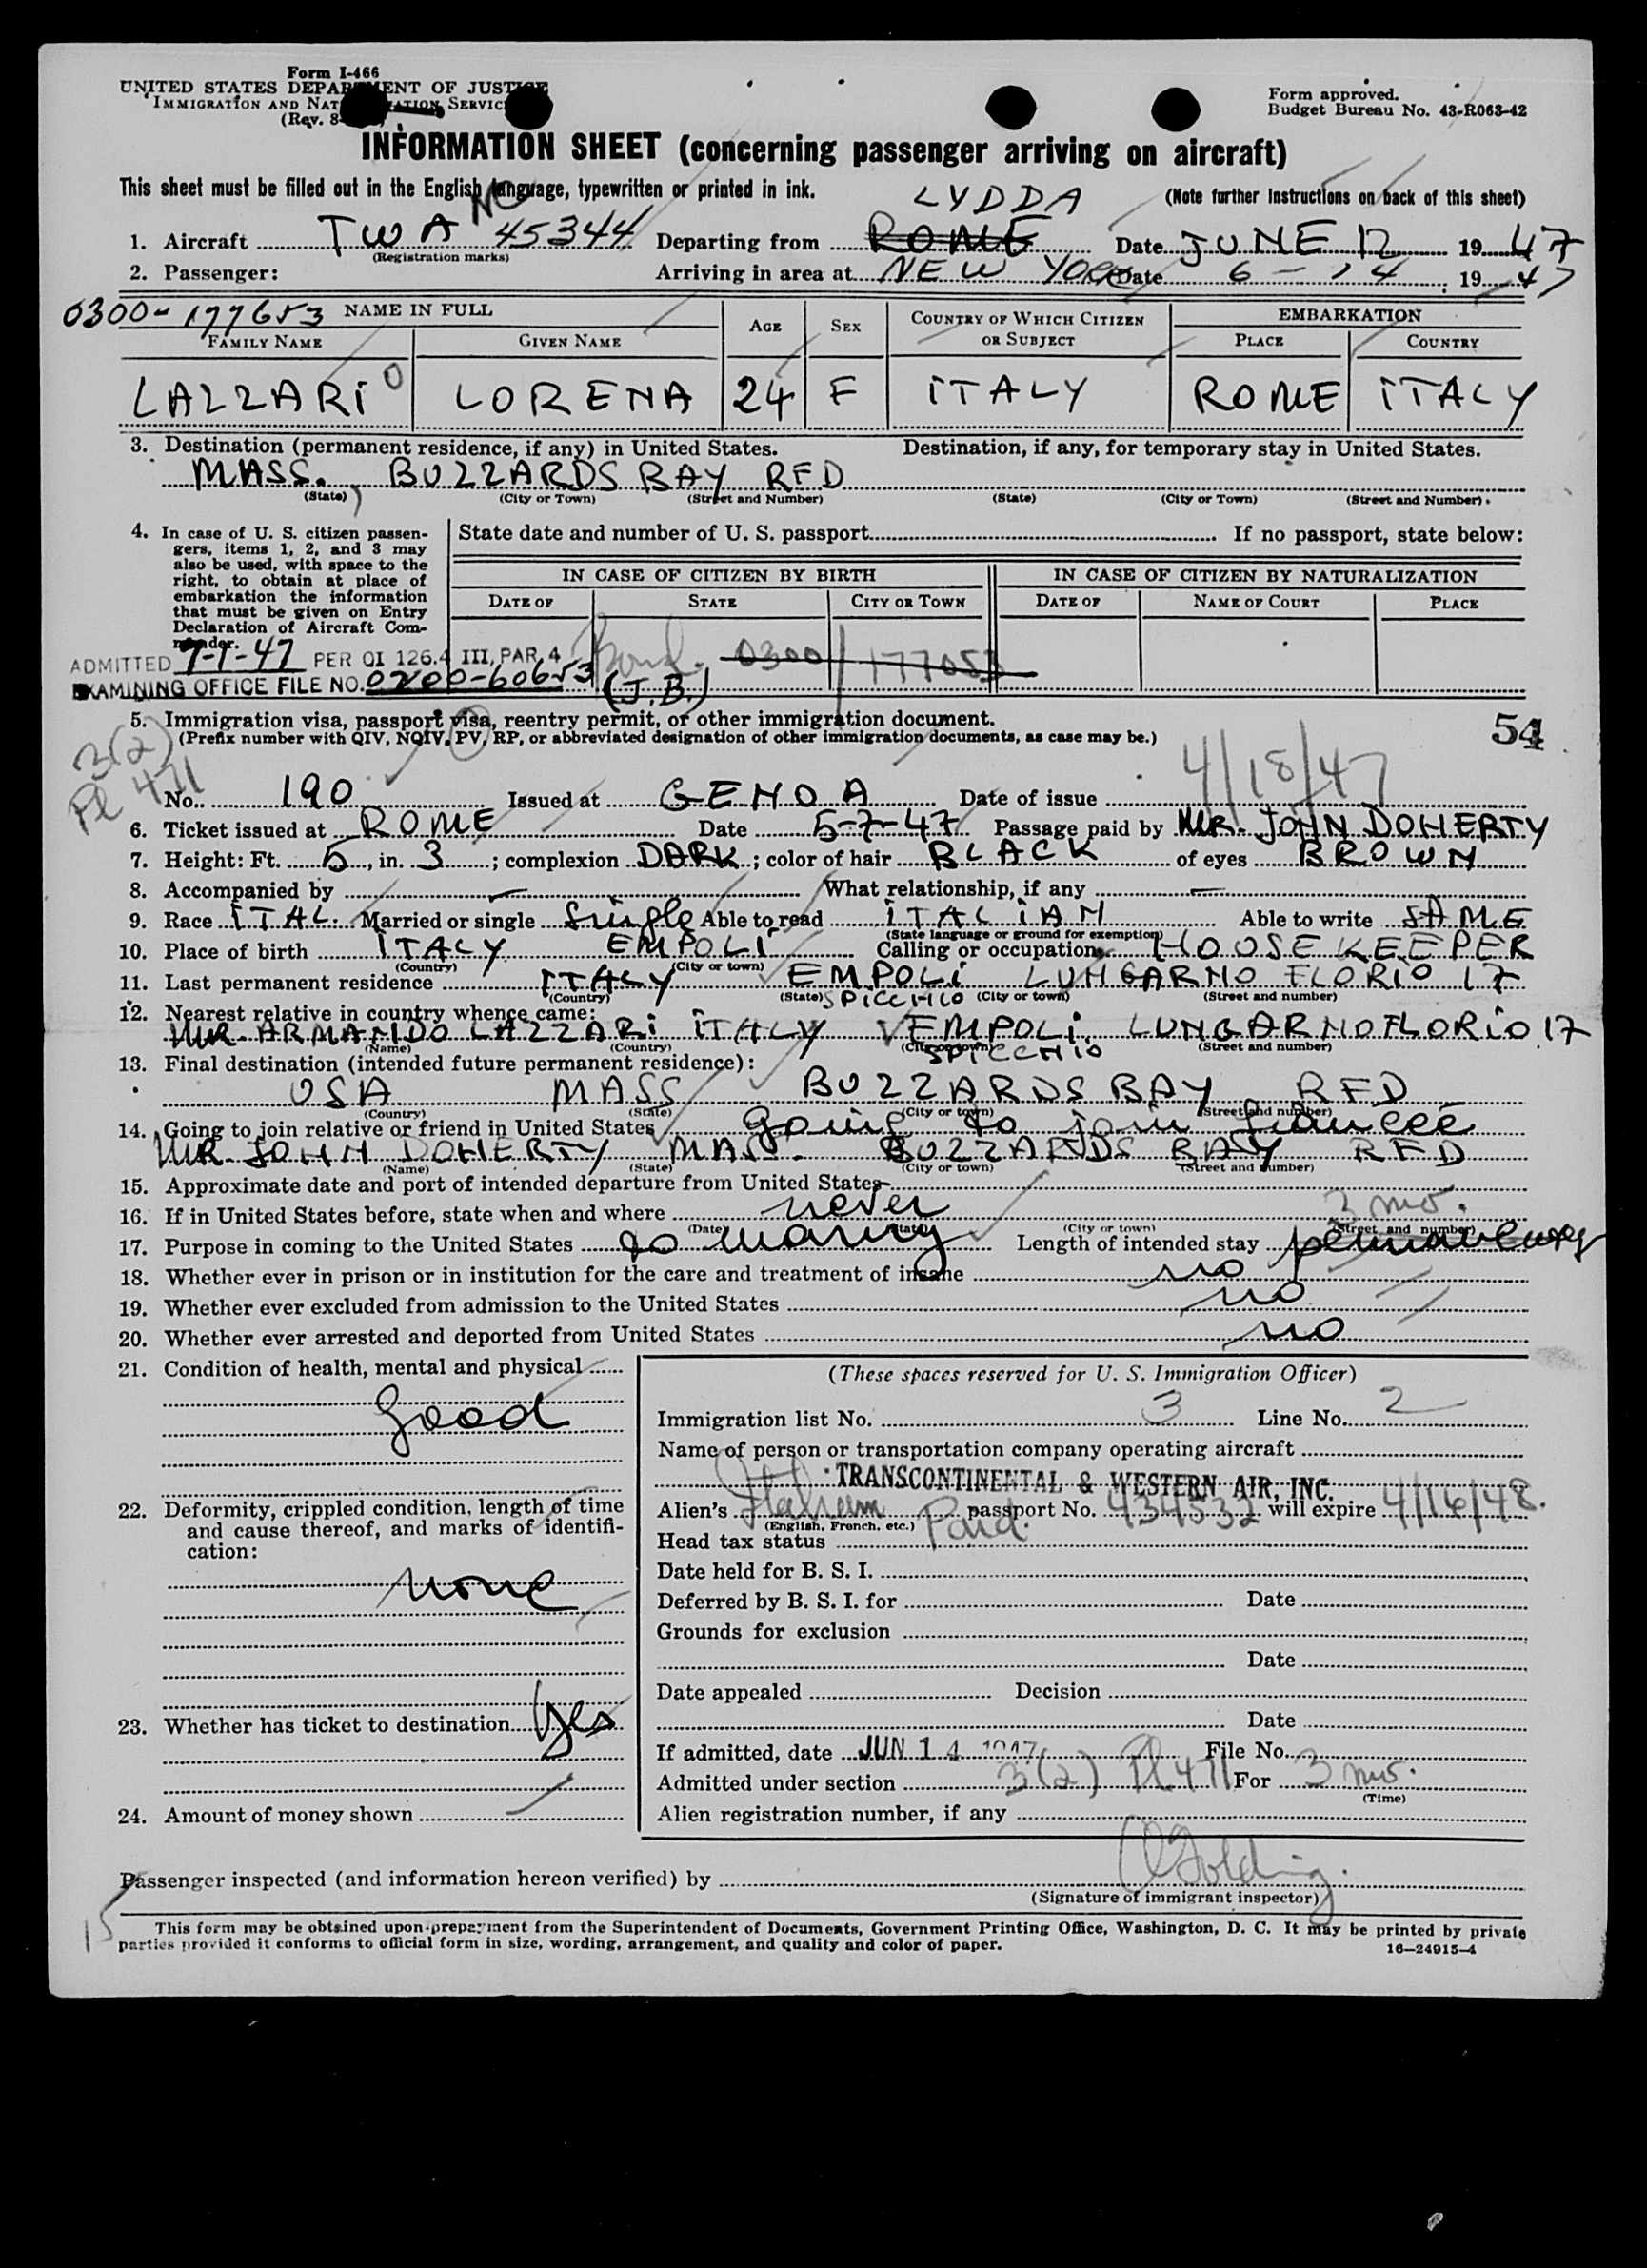 Form I-466
UNITED STATES DEPARTMENT OF JUSTICE
IMMIGRATION AND NATURALIZATION SERVICE
(Rev. 8-
Form approved.
Budget Bureau No. 43-R063-42
INFORMATION SHEET (concerning passenger arriving on aircraft)
This sheet must be filled out in the English language, typewritten or printed in ink.
(Note further instructions on back of this sheet)
NC LYDDA
1. Aircraft TWA 45344 Departing from ROME Date JUNE 12 1947
(Registration marks)
2. Passenger: Arriving in area at NEW YORK Date 6-14 1947
0300-177653 NAME IN FULL AGE SEX COUNTRY OF WHICH CITIZEN OR SUBJECT EMBARKATION
FAMILY NAME GIVEN NAME PLACE COUNTRY
LAZZARI O LORENA 24 F ITALY ROME ITALY
3. Destination (permanent residence, if any) in United States. Destination, if any, for temporary stay in United States.
MASS. BUZZARDS BAY RFD
(State) (City or Town) (Street and Number) (State) (City or Town) (Street and Number)
4. In case of U. S. citizen passengers, items 1, 2, and 3 may also be used, with space to the right, to obtain at place of embarkation the information that must be given on Entry Declaration of Aircraft Commander.
State date and number of U. S. passport If no passport, state below:
IN CASE OF CITIZEN BY BIRTH IN CASE OF CITIZEN BY NATURALIZATION
DATE OF STATE CITY OR TOWN DATE OF NAME OF COURT PLACE
ADMITTED 7-1-47 PER OI 126.4 III, PAR. 4 Bond 0300/177053
EXAMINING OFFICE FILE NO. 0200-60653 (J.B.)
5. Immigration visa, passport visa, reentry permit, or other immigration document. 54
(Prefix number with QIV, NQIV, PV, RP, or abbreviated designation of other immigration documents, as case may be.)
3(2)
Pl 471
No. 190 Issued at GENOA Date of issue 4/18/47
6. Ticket issued at ROME Date 5-7-47 Passage paid by MR. JOHN DOHERTY
7. Height: Ft. 5, in. 3; complexion DARK; color of hair BLACK of eyes BROWN
8. Accompanied by — What relationship, if any —
9. Race ITAL. Married or single Single Able to read ITALIAN Able to write SAME
(State language or ground for exemption)
10. Place of birth ITALY EMPOLI Calling or occupation HOUSEKEEPER
(Country) (City or town)
11. Last permanent residence ITALY EMPOLI LUNGARNO FLORIO 17
(Country) (State) SPICCHIO (City or town) (Street and number)
12. Nearest relative in country whence came:
MR. ARMANDO LAZZARI ITALY EMPOLI LUNGARNO FLORIO 17
(Name) (Country) (City or town) SPICCHIO (Street and number)
13. Final destination (intended future permanent residence):
USA MASS BUZZARDS BAY RFD
(Country) (State) (City or town) (Street and number)
14. Going to join relative or friend in United States Going to join fianceé
MR. JOHN DOHERTY MASS. BUZZARDS BAY RFD
(Name) (State) (City or town) (Street and number)
15. Approximate date and port of intended departure from United States
16. If in United States before, state when and where never
(Date) (State) (City or town) (Street and number)
3 mo.
17. Purpose in coming to the United States to marry Length of intended stay permanency
18. Whether ever in prison or in institution for the care and treatment of insane no
19. Whether ever excluded from admission to the United States no
20. Whether ever arrested and deported from United States no
21. Condition of health, mental and physical
good
22. Deformity, crippled condition, length of time and cause thereof, and marks of identification:
none
23. Whether has ticket to destination yes
24. Amount of money shown
(These spaces reserved for U. S. Immigration Officer)
Immigration list No. 3 Line No. 2
Name of person or transportation company operating aircraft
TRANSCONTINENTAL & WESTERN AIR, INC.
Alien's Italian passport No. 434532 will expire 4/16/48.
(English, French, etc.)
Head tax status Paid.
Date held for B. S. I.
Deferred by B. S. I. for Date
Grounds for exclusion
Date
Date appealed Decision
Date
If admitted, date JUN 14 1947 File No.
Admitted under section 3(2) Pl 471 For 3 mos.
(Time)
Alien registration number, if any
Passenger inspected (and information hereon verified) by Golding
(Signature of immigrant inspector)
15
This form may be obtained upon prepayment from the Superintendent of Documents, Government Printing Office, Washington, D. C. It may be printed by private
parties provided it conforms to official form in size, wording, arrangement, and quality and color of paper.
16—24915-4